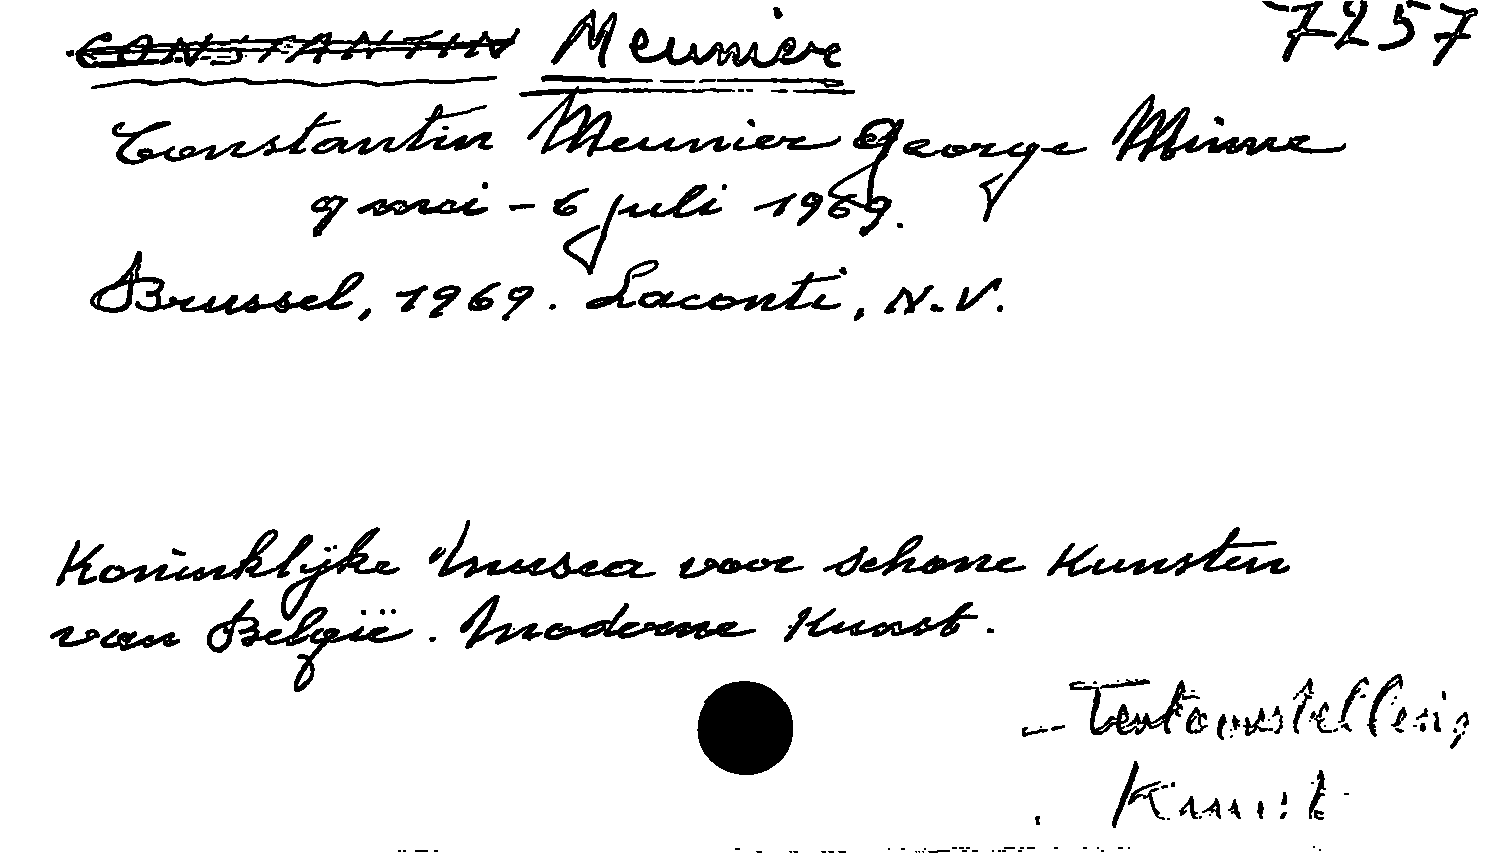 CONSTANTIN Meunier 7257
Constantin Meunier George Minne
9 mei - 6 juli 1969.
Brussel, 1969. Laconti, N.V.
Koninklijke musea voor schone Kunsten
van België. Moderne Kunst.
- Tentoonstelling
Kunst